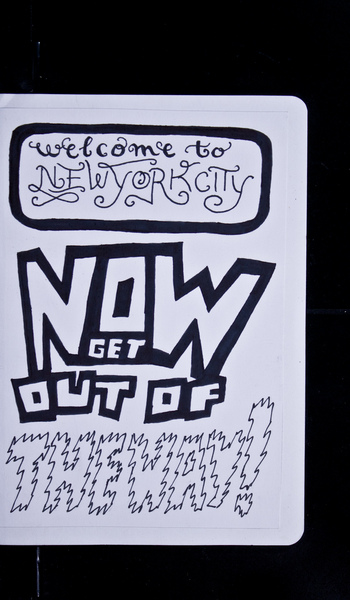 welcome to
NEW YORK CITY
NOW
GET
OUT OF
THE WAY!